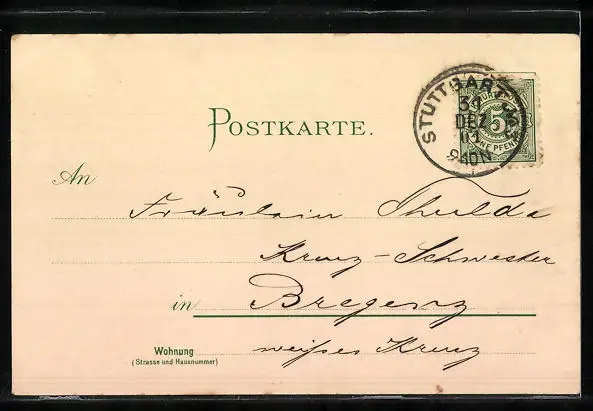 STUTTGART
31
DEZ
9-10N
5
POSTKARTE.
An
Fräulein Thulda
Kreuz-Schwester
in Bregenz
Wohnung weißes Kreuz
(Strasse und Hausnummer)